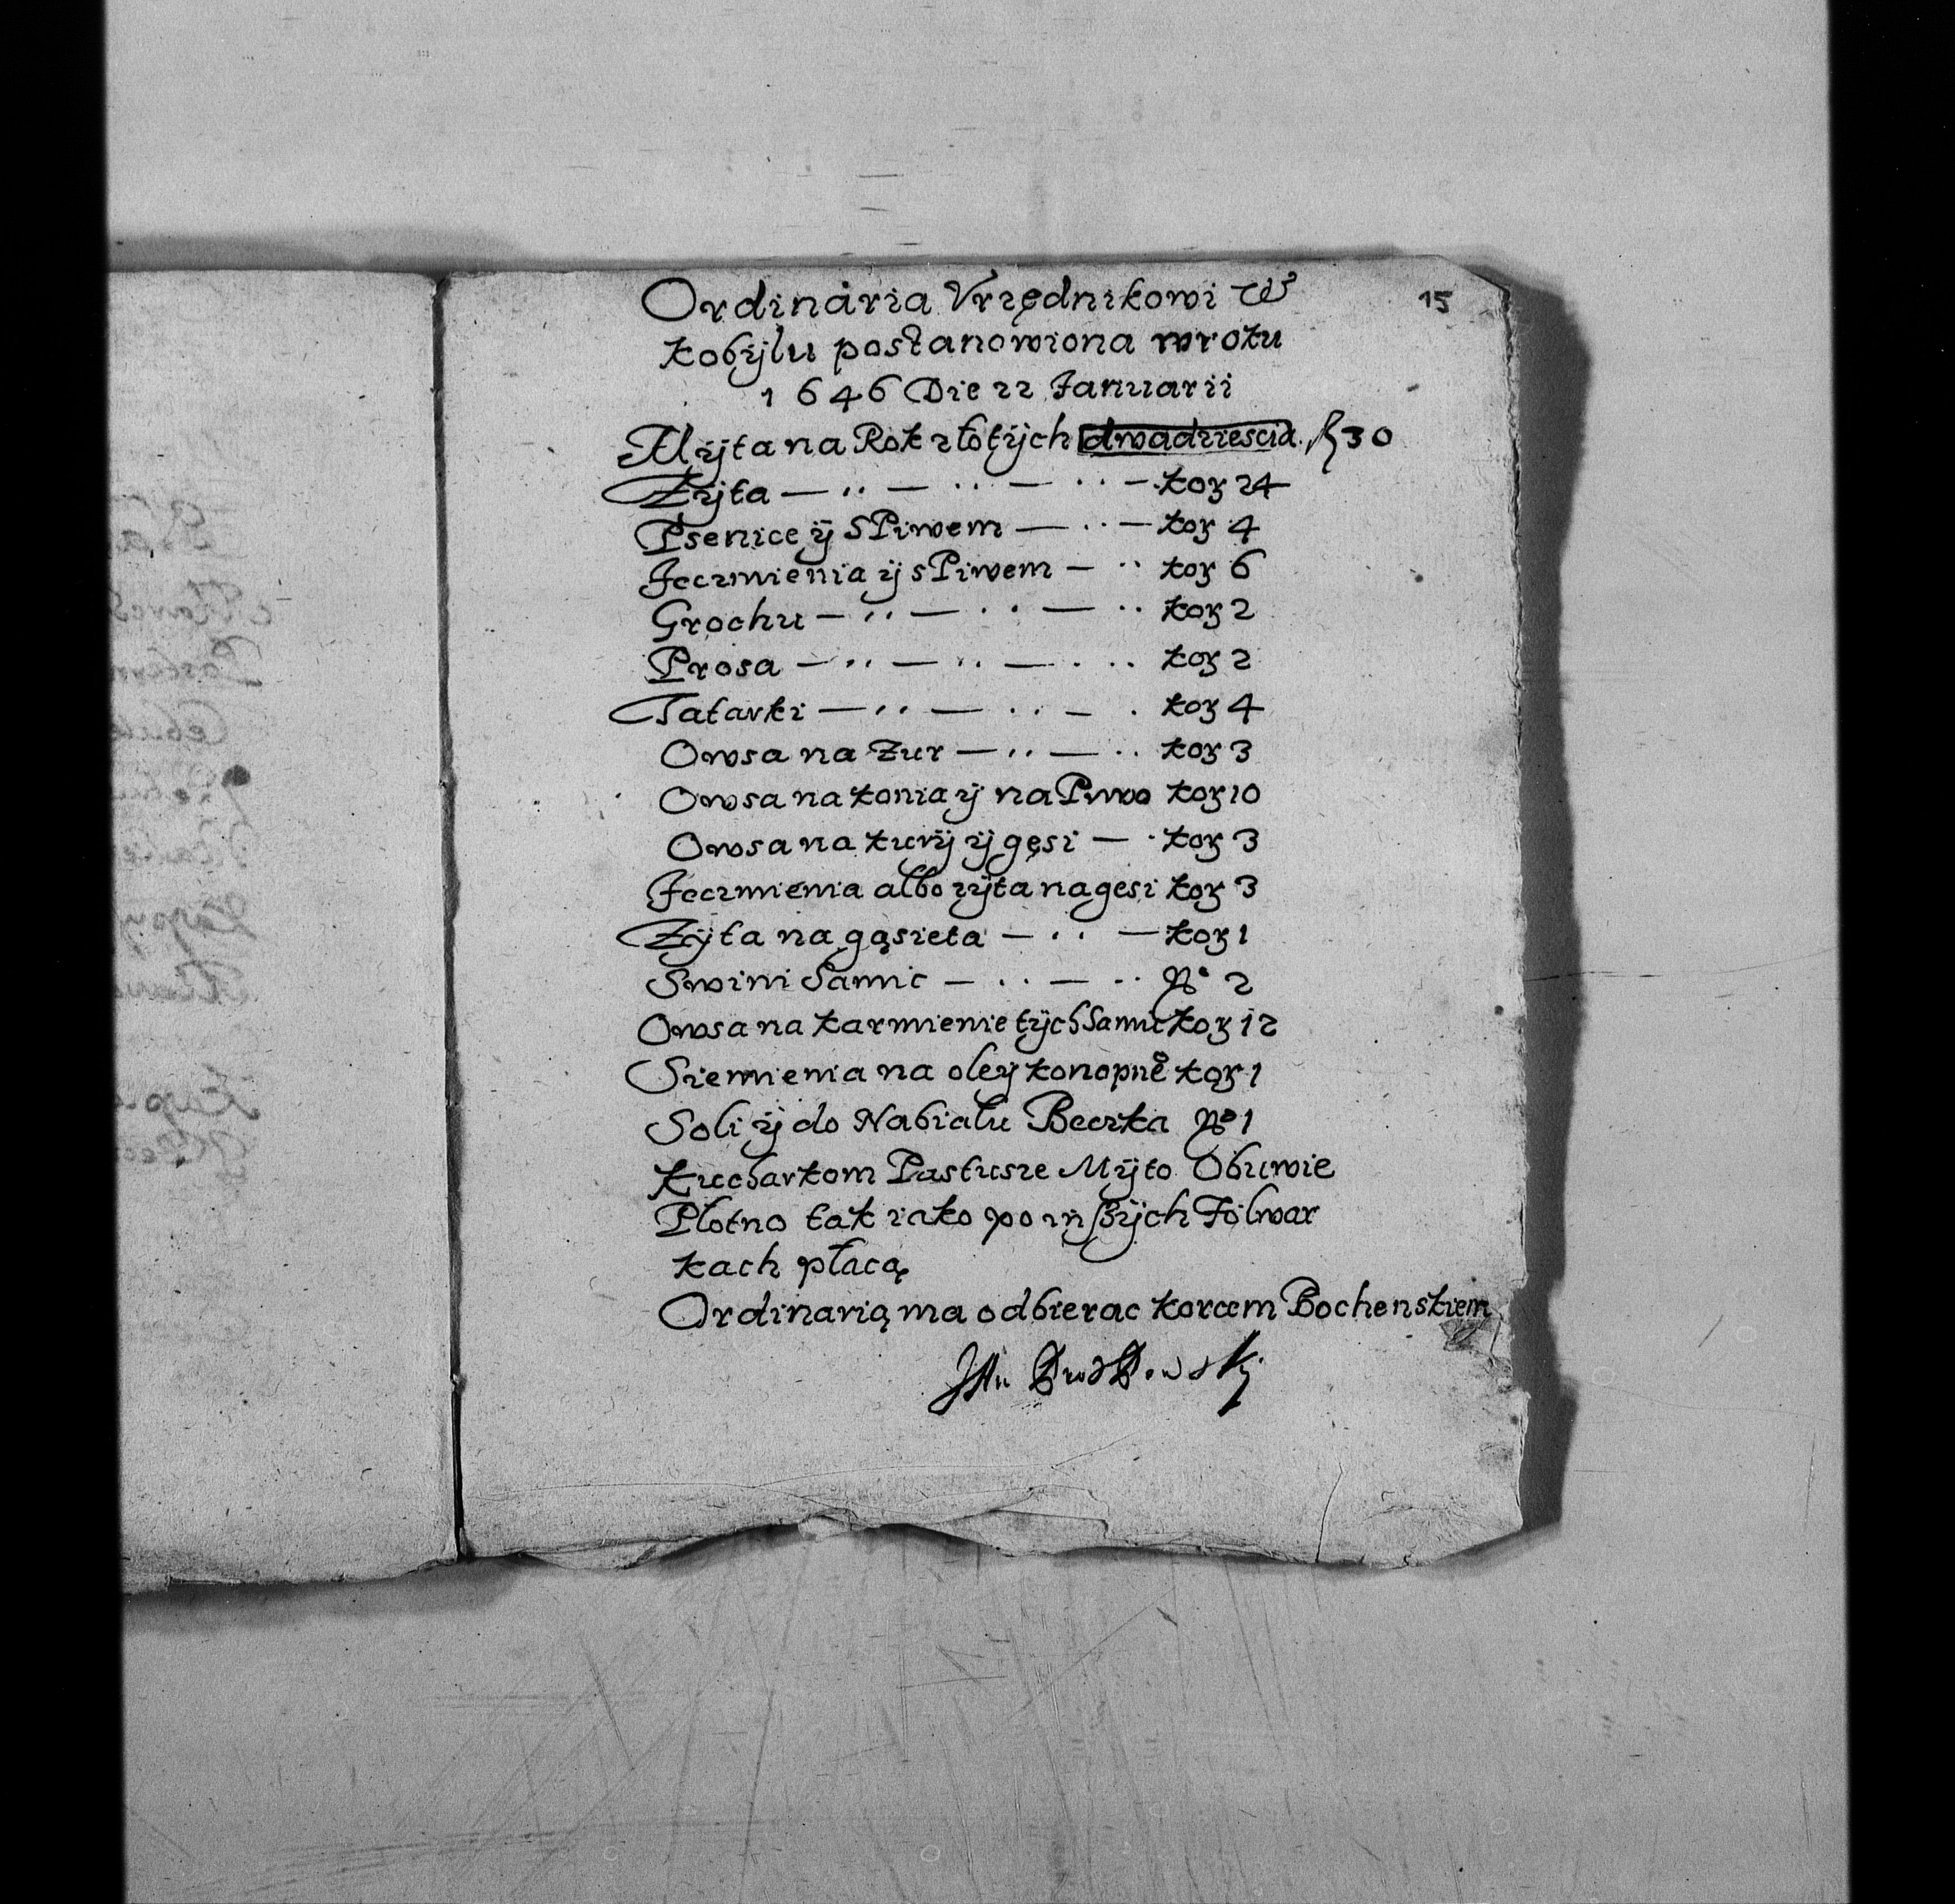 15
Ordinaria Vrzędnikowi w
Kobÿlu postanowiona w roku
1646 Die 22 Januarii
Mÿta na Rok złotÿch dwadziescia fl 30
Zÿta — ·· — ·· — ·· — kor 24
Psenice ÿ s Piwem — ·· — kor 4
Jęczmienia ÿ s Piwem — ·· kor 6
Grochu — ·· — ·· — ·· kor 2
Prosa — ·· — ·· — · ·· kor 2
Tatarki — ·· — ·· — · kor 4
Owsa na Zur — ·· — ·· kor 3
Owsa na konia ÿ na Piwo kor 10
Owsa na kurÿ ÿ gęsi — · kor 3
Jęczmienia albo zÿta na gęsi kor 3
Zÿta na gąsięta — ·· — kor 1
Swini Samic — ·· — ·· No 2
Owsa na karmienie tÿch Samic kor 12
Siemienia na oleÿ konopne kor 1
Soli ÿ do Nabialu Beczka No 1
Kucharkom Pastusze Mÿto Obuwie
Płotno tak iako po inszÿch Folwar
kach płacą
Ordinarią ma odbierac korcem Bochenskiem